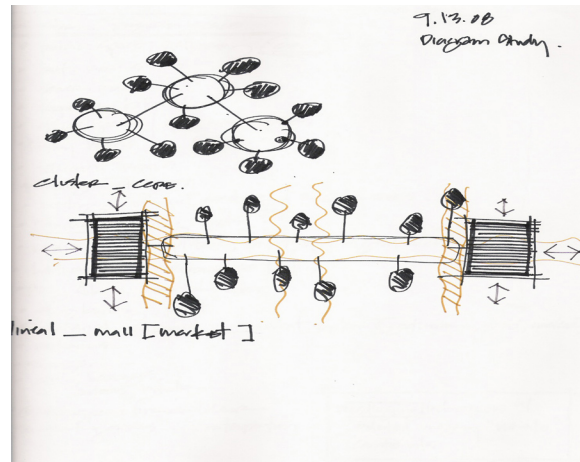 9.13.08
Diagram Study.
cluster_core.
lineal _ mall [market]